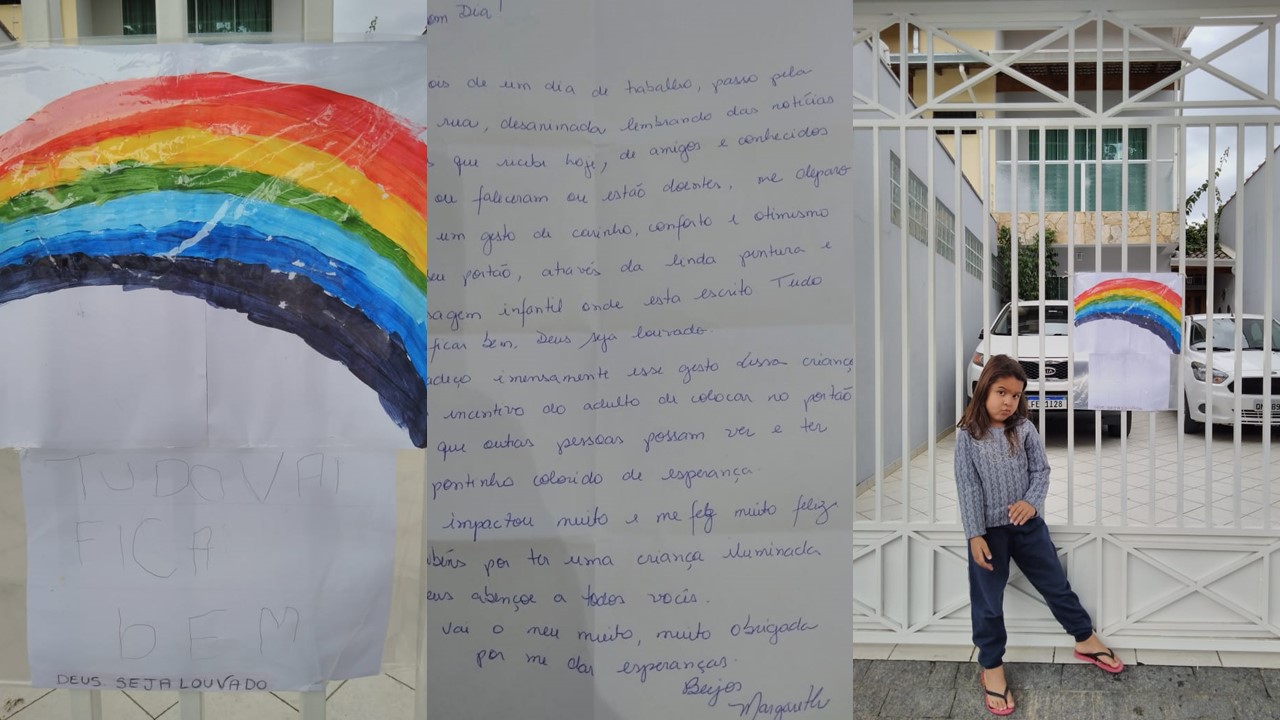 TUDO VAI
FICA
bEM
DEUS SEJA LOUVADO
om Dia!
ois de um dia de trabalho, passo pela
rua, desanimada lembrando das notícias
s que recebi hoje, de amigos e conhecidos
ou faleceram ou estão doentes, me deparo
um gesto de carinho, conforto e otimismo
eu portão, através da linda pintura e
sagem infantil onde esta escrito Tudo
ficar bem, Deus seja louvado.
adeço imensamente esse gesto dessa criança
incentivo do adulto de colocar no portão
que outras pessoas possam ver e ter
pontinho colorido de esperança.
impactou muito e me fez muito feliz
abéns por ter uma criança iluminada
eus abençoe a todos vocês.
vai o meu muito, muito obrigada
por me dar esperanças.
Beijos
Margareth